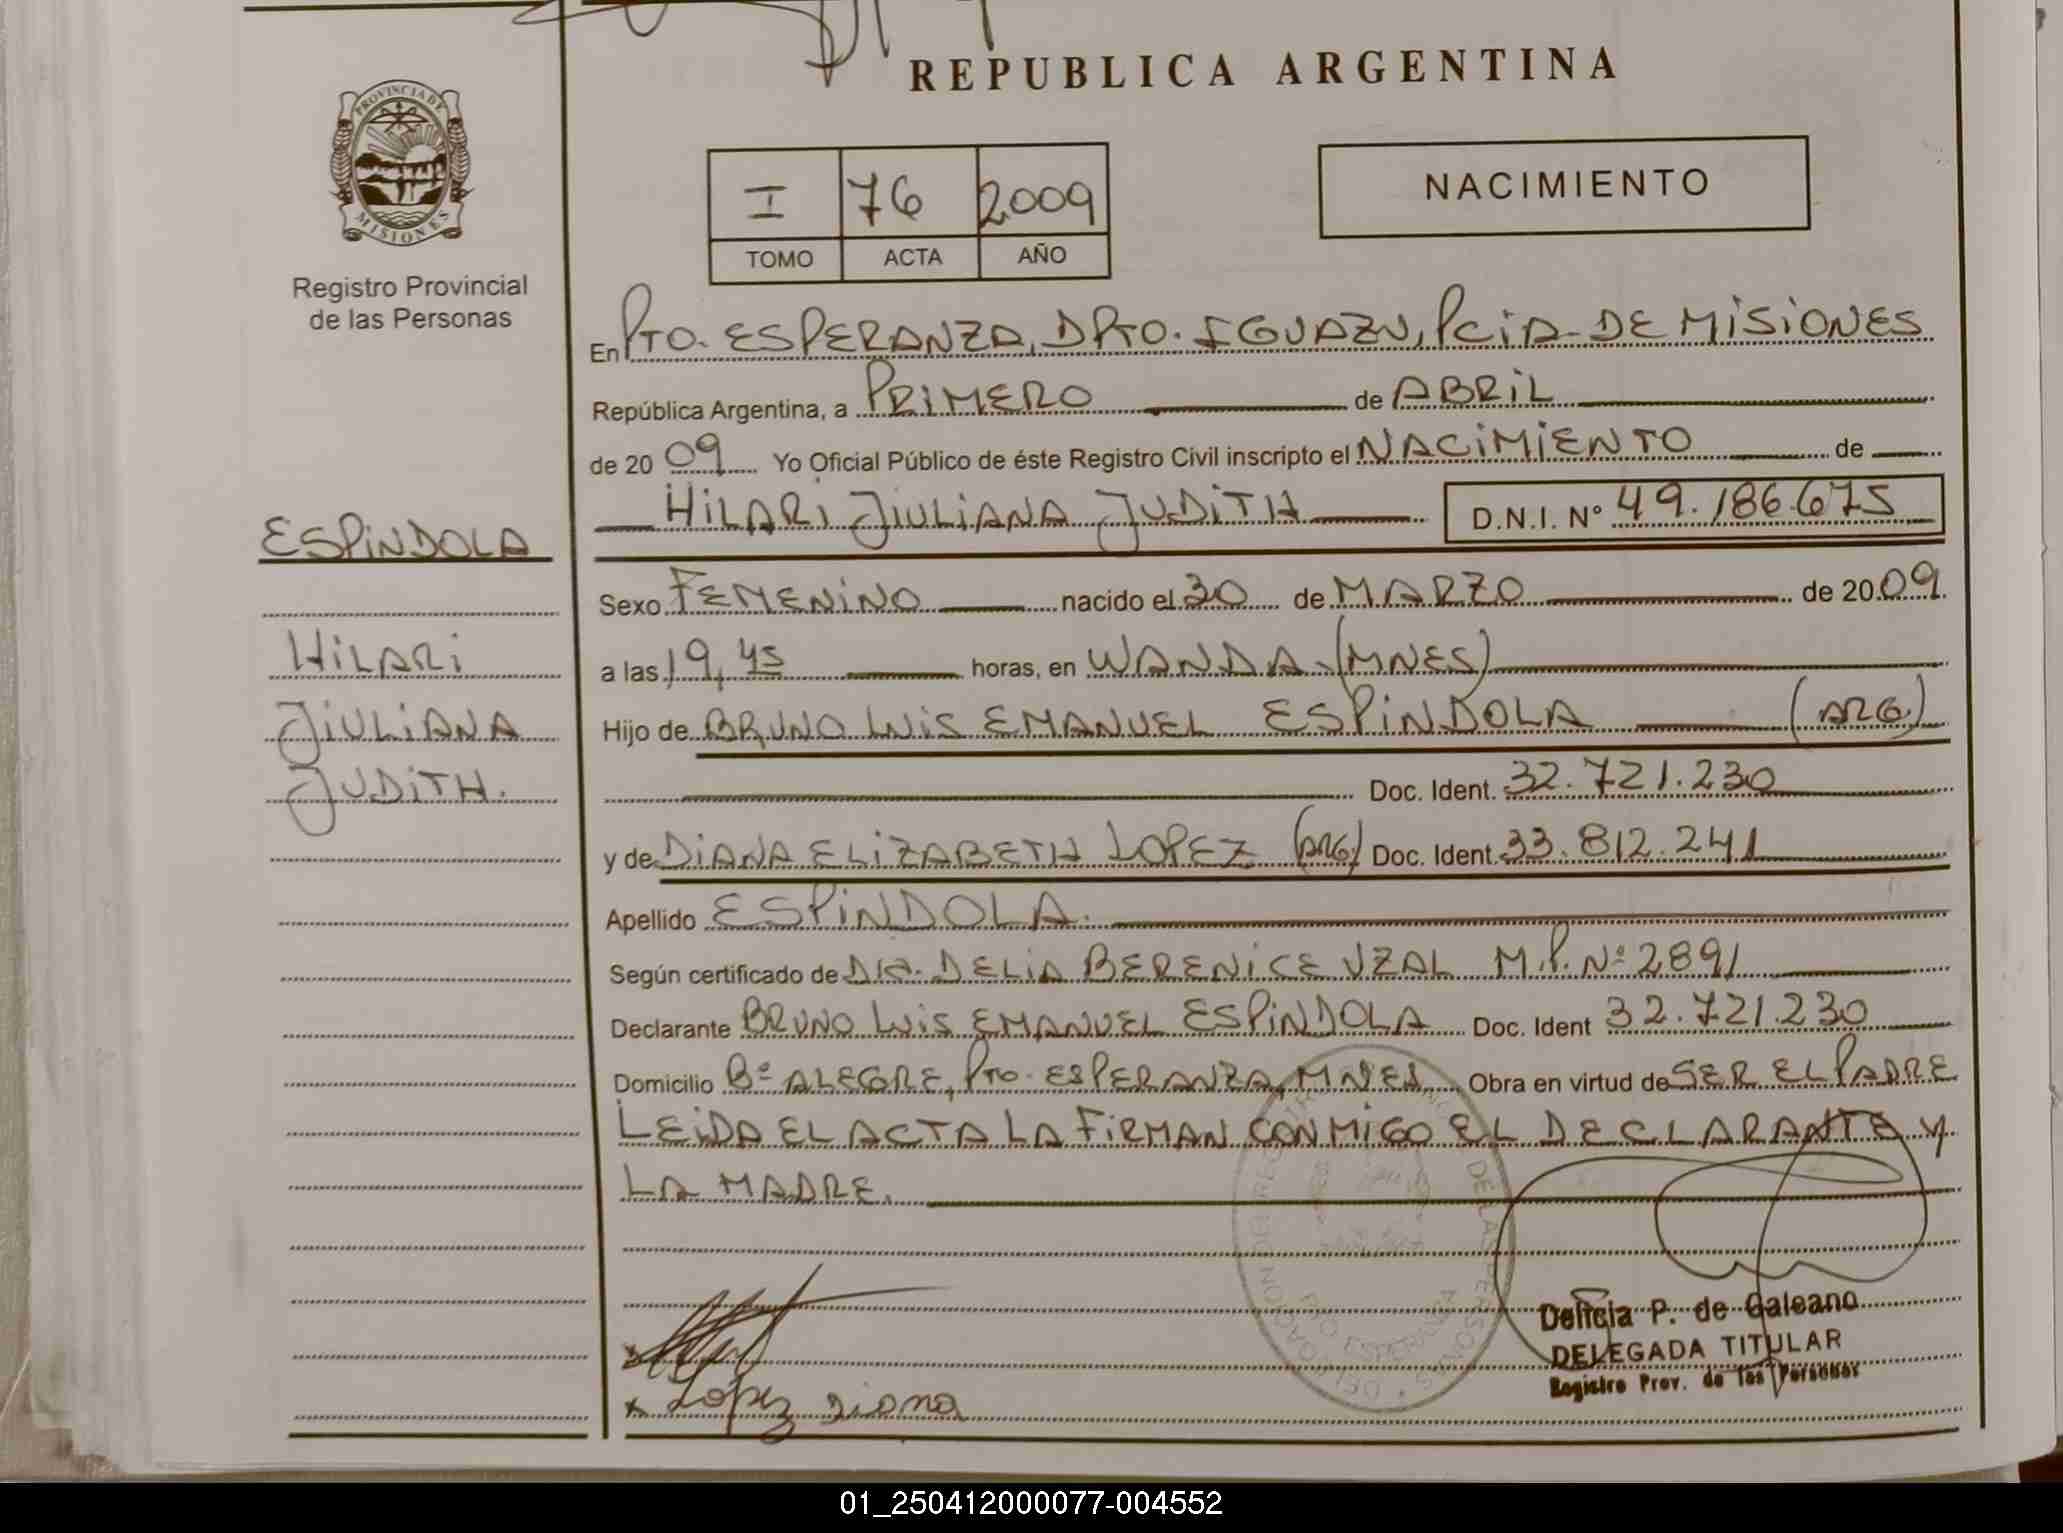 REPUBLICA ARGENTINA
PROVINCIA DE
MISIONES
Registro Provincial
de las Personas
I 76 2009
TOMO ACTA AÑO
NACIMIENTO
En PTO. ESPERANZA, DPTO. IGUAZU, PCIA DE MISIONES
República Argentina, a PRIMERO de ABRIL
de 20 09 Yo Oficial Público de éste Registro Civil inscripto el NACIMIENTO de
HILARI JIULIANA JUDITH D.N.I. N° 49.186.675
ESPINDOLA
HILARI
JIULIANA
JUDITH.
Sexo FEMENINO nacido el 30 de MARZO de 2009
a las 19,45 horas, en WANDA (MNES)
Hijo de BRUNO LUIS EMANUEL ESPINDOLA (ARG)
Doc. Ident. 32.721.230
y de DIANA ELIZABETH LOPEZ (ARG) Doc. Ident. 33.812.241
Apellido ESPINDOLA.
Según certificado de DRA. DELIA BERENICE UZAL M.P. Nº 2891
Declarante BRUNO LUIS EMANUEL ESPINDOLA Doc. Ident 32.721.230
Domicilio Bº ALEGRE, PTO. ESPERANZA, MNES Obra en virtud de SER EL PADRE
LEIDA EL ACTA LA FIRMAN CONMIGO EL DECLARANTE Y
LA MADRE.
Delicia P. de Galeano
DELEGADA TITULAR
Registro Prov. de las Personas
x
x López Diana
PTO ESPERANZA
01_250412000077-004552